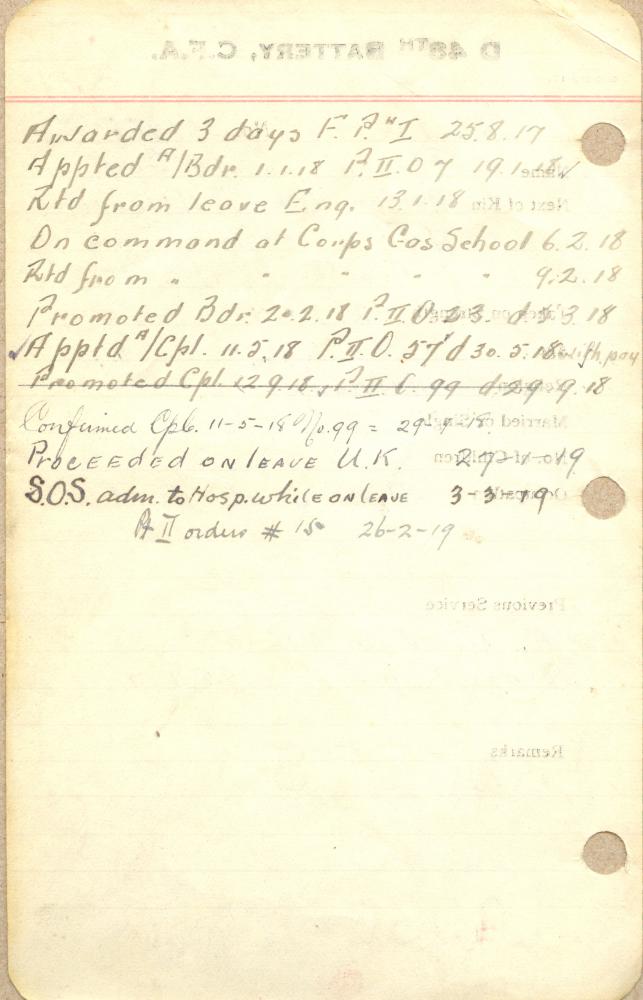 D 48TH BATTERY, C.F.A.
Awarded 3 days F. P. "I 25.8.17
Appted A/Bdr. 1.1.18 P.II.O 7 19.1.18
Rtd from leave Eng. 13.1.18
On command at Corps Gas School 6.2.18
Rtd from " " " " " 9.2.18
Promoted Bdr. 2.18 P.II.O 23. d 3.18
Apptd A/Cpl. 11.5.18 P.II.O. 57 d 30.5.18 with pay
Promoted Cpl. 12.9.18, P.II O. 99 d. 29.9.18
Confirmed Cpl. 11-5-18 No. 99 = 29-9-18.
Proceeded on leave U.K.
S.O.S. adm. to Hosp. while on leave 3-3-19
Pt II orders # 15 26-2-19
Name
Next of Kin
Married or Single
No. of Children
Previous Service
Remarks